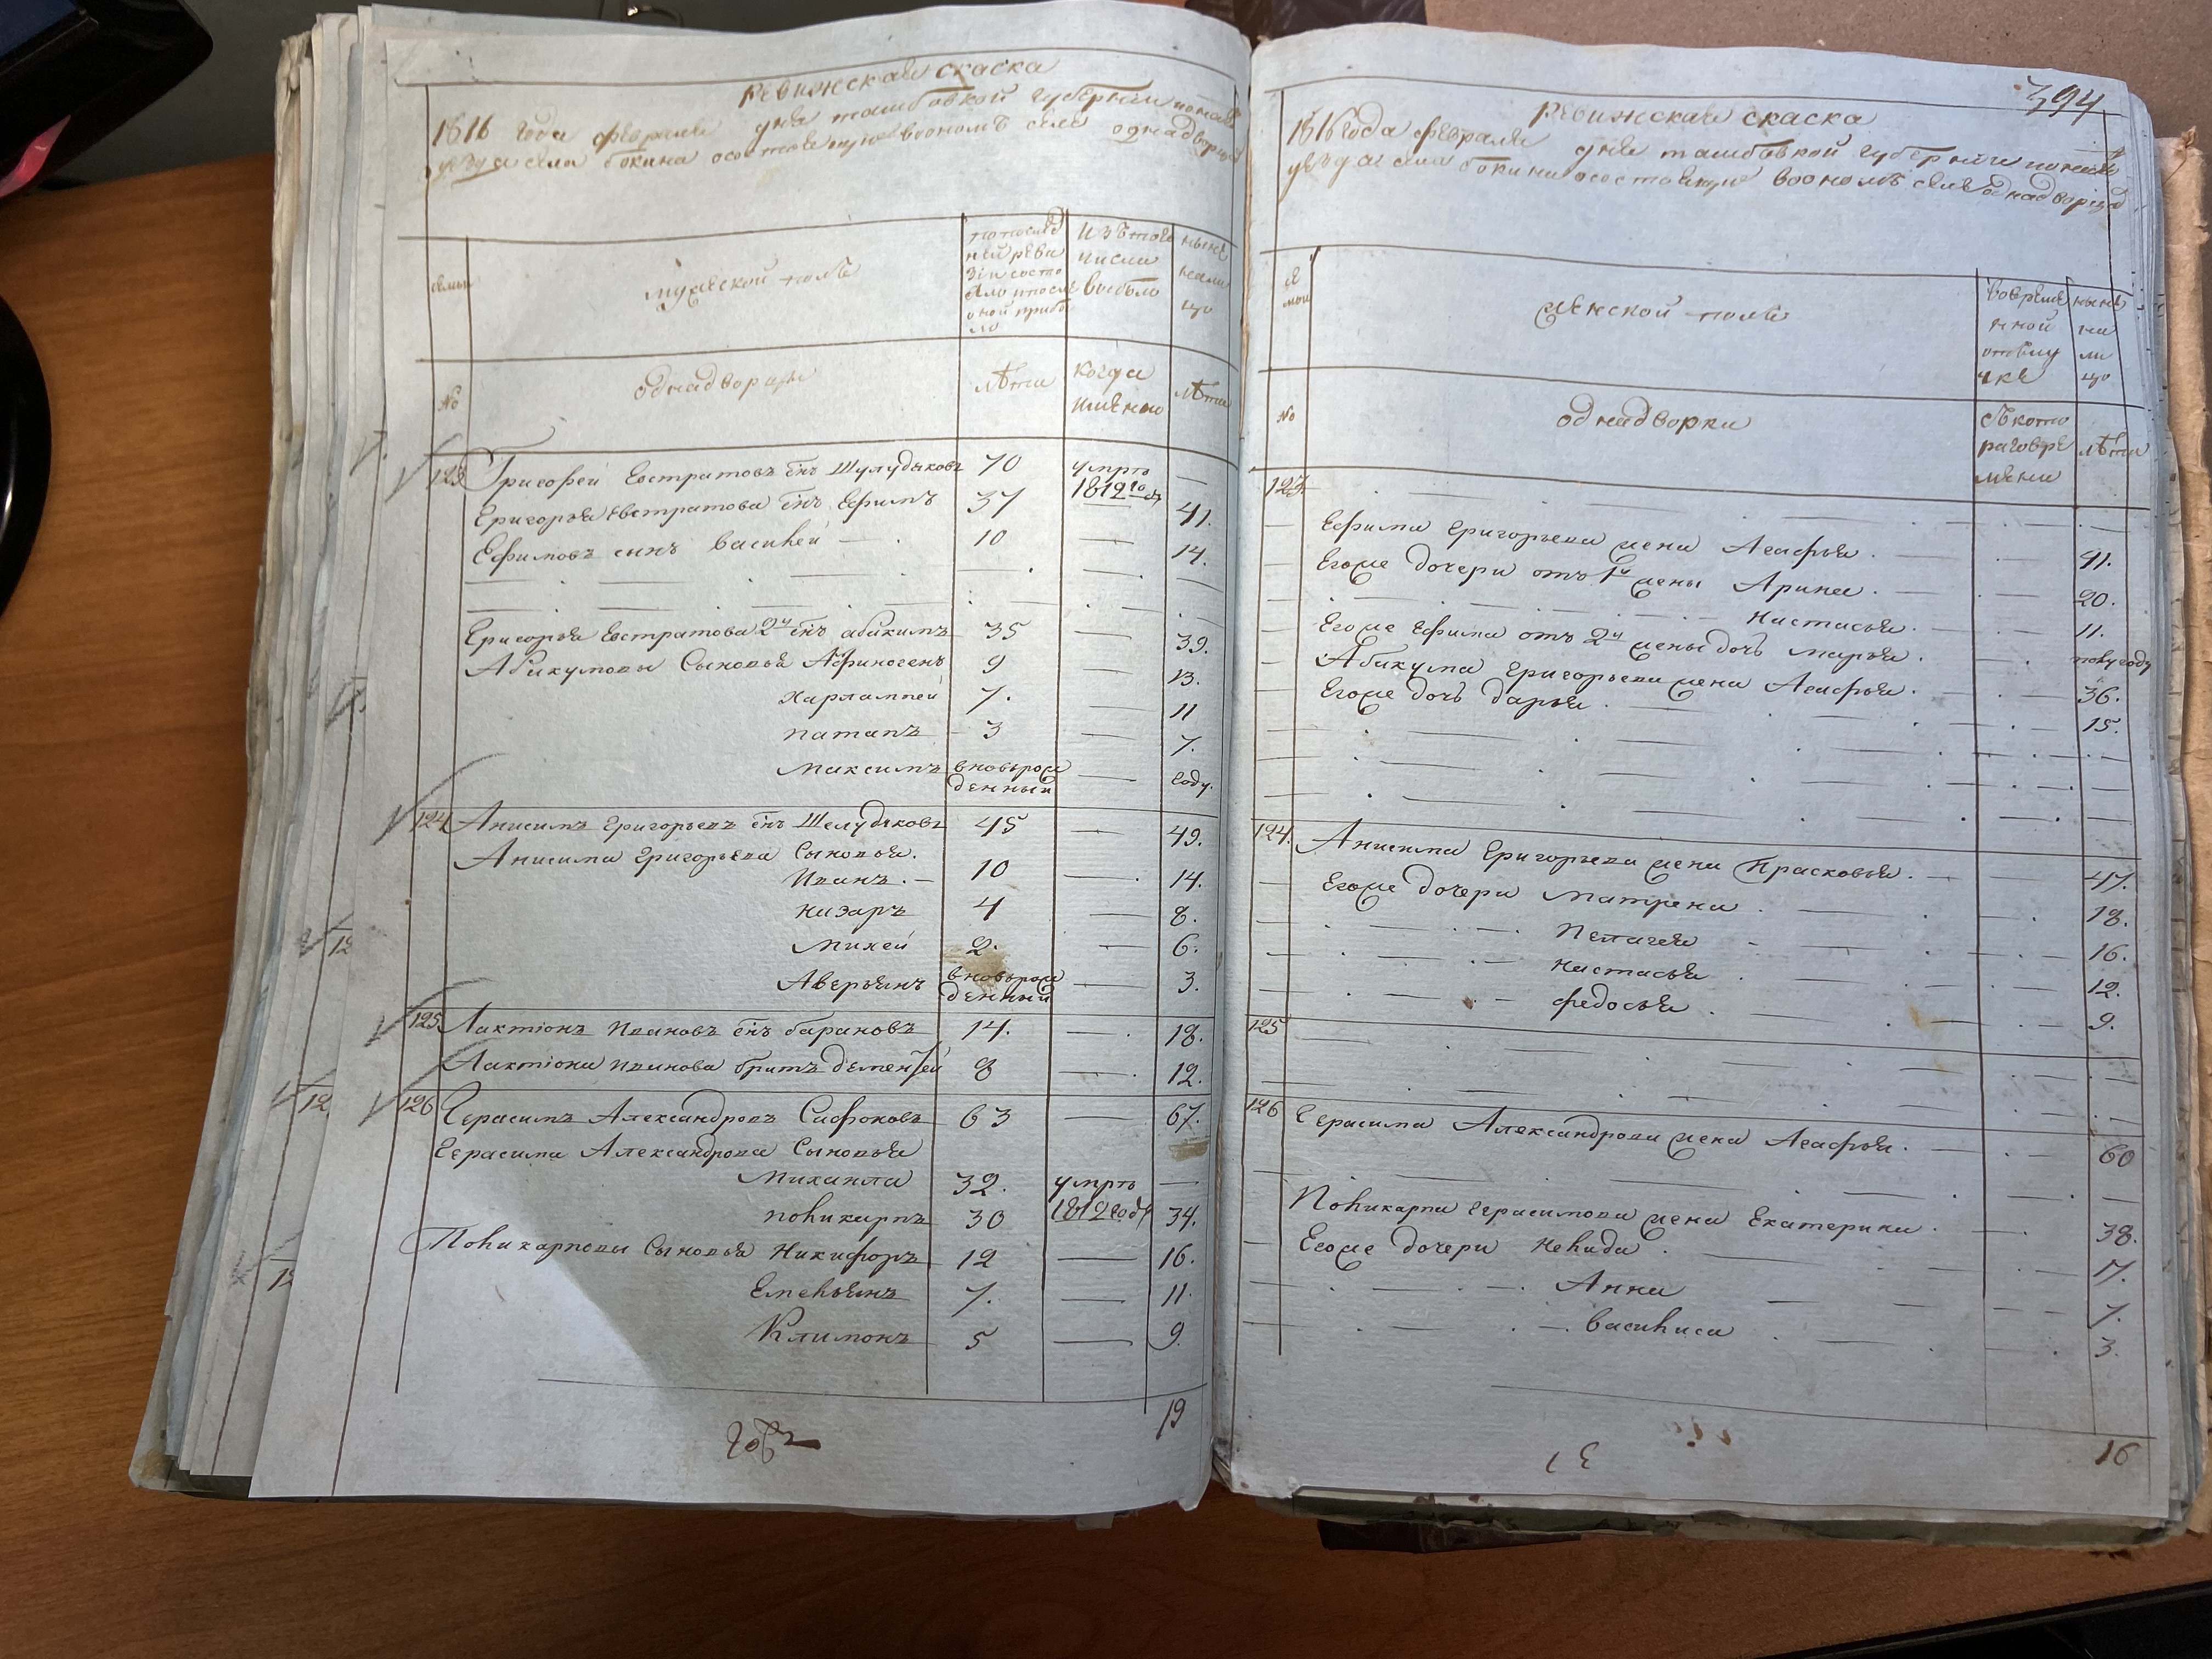 Ревижская скаска
1816 года февраля дня тамбовской губернии
уезда села бокина осостоящих воономъ селе однадворцах
семьи
мужеской полъ
попослед
ней реви
зіи состо
яло ипосле
оной прибы
ло
изътого
числа
выбыло
ныне
нали
цо
№
однадворцы
лѣта
когда
имѣнно
лѣта
123
Григорей Евстратовъ сынъ Шулудяковъ 70 умръ 1812 —
Григорья Евстратова сынъ Ефимъ 37 — 41.
Ефимовъ сынъ Василей — 10 — 14.
Григорья Евстратова 2й сынъ абакимъ 35 — 39.
Абакумовы Сыновья Афиногенъ 9 — 13.
Харлампей 7. — 11
патапъ 3 — 7.
Максимъ вновьрож
денный — году.
124 Анисимъ Григорьевъ сынъ Шелудяковъ 45 — 49.
Анисима Григорьева Сыновья.
Иванъ. — 10 — 14.
назаръ 4 — 8.
Михей 2. — 6.
Аверьянъ вновьрож
денный — 3.
125 Лактіонъ Ивановъ сынъ барановъ 14. — 18.
Лактіона Иванова братъ дементей 8 — 12.
126 Герасимъ Александровъ Сафоновъ 63 — 67.
Герасима Александрова Сыновья
Михаила 32. умръ —
поликарпъ 30 1812 году 34.
Поликарповы Сыновья Никифоръ 12 — 16.
Емельянъ 7. — 11.
Климонъ 5 — 9.
19
394
Ревижская скаска
1816 года февраля дня тамбовской губернии
уезда села бокина осостоящих воономъ селе однадворцах
се
мьи
женской полъ
вовреме
нной
отлу
чке
ныне
на
ли
цо
№
однадворки
съкото
раговре
мени
лѣта
123
Ефима Григорьева жена Агафья. — 41.
Егоже дочери отъ 1й жены Арина. — 20.
Настасья. 11.
Егоже Ефима отъ 2й жены дочь марья. полугоду
Абакума Григорьева жена Агафья. — 36.
Егоже дочь дарья. — 15.
124. Анисима Григорьева жена Прасковья. — 47.
Егоже дочери Матрена. — 18.
Пелагея — 16.
Настасья — 12.
федосья. — 9.
125
126 Герасима Александрова жена Агафья. — 60
Поликарпа Герасимова жена Екатерина. — 38.
Егоже дочери Нелида. — 17.
Анна — 7.
Василиса — 3.
16